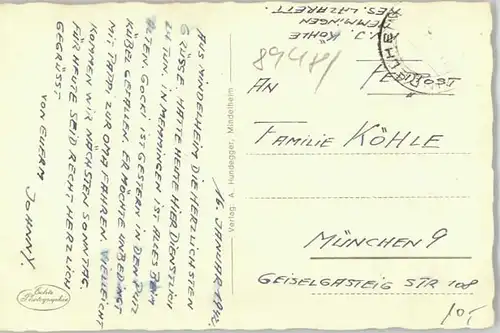 16. JANUAR 1942.
AUS MINDELHEIM DIE HERZLICHSTEN
GRÜSSE. HATTE HEUTE HIER DIENSTLICH
ZU TUN. IN MEMMINGEN IST ALLES BEIM
ALTEN. GOCKI IST GESTERN IN DEN PUTZ
KÜBEL GEFALLEN. ER MÖCHTE UNBEDINGT
MIT PAPA ZUR OMA FAHREN. VIELLEICHT
KOMMEN WIR NÄCHSTEN SONNTAG
FÜR HEUTE SEID RECHT HERZLICH
GEGRÜSST
VON EUERM JOHNNY.
Echte Photographie
Verlag: A. Hundegger, Mindelheim
KÖHLE
MEMMINGEN
RES. LAZARETT.
8948/1
FELDPOST
AN
FAMILIE KÖHLE
MÜNCHEN 9
GEISELGASTEIG STR 108
10,-